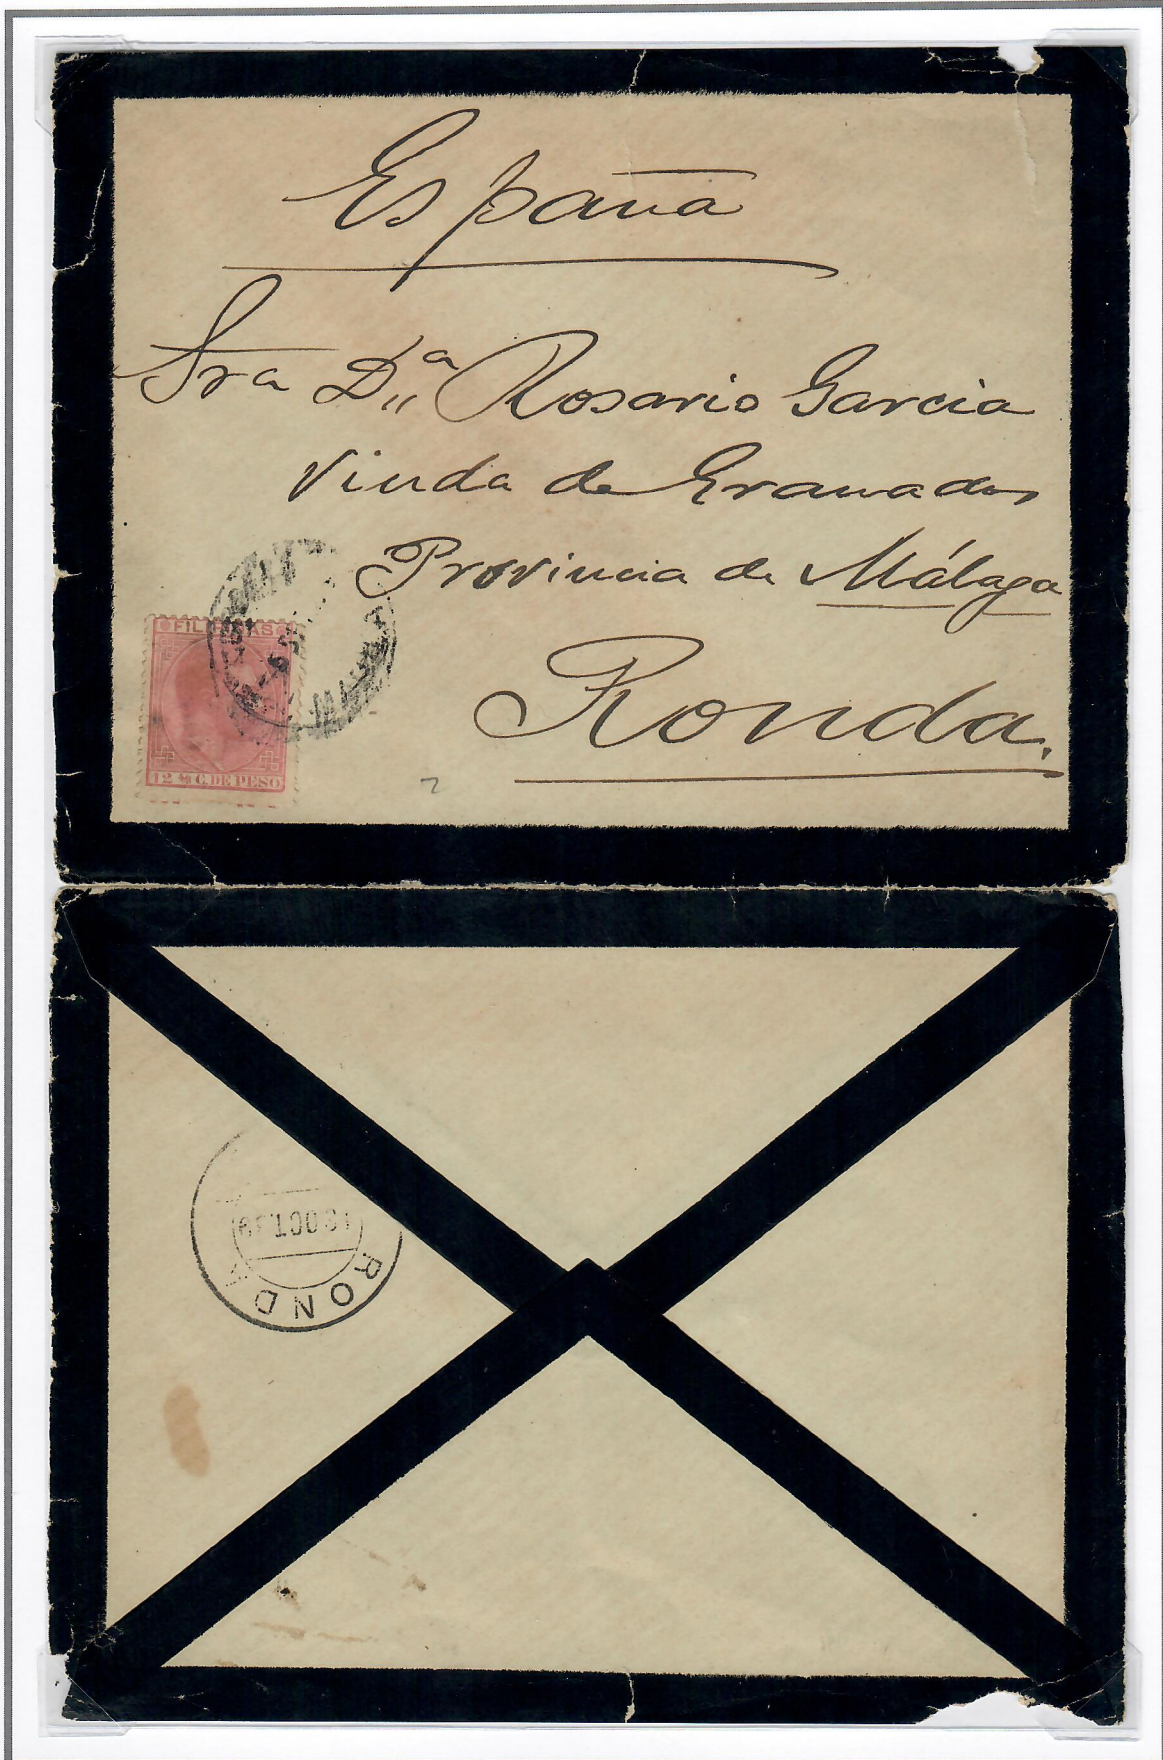 España
Sra Dª Rosario Garcia
Viuda de Granados
Provincia de Málaga
Ronda.
FILIPINAS
12 4/8 C. DE PESO
OCT
RONDA